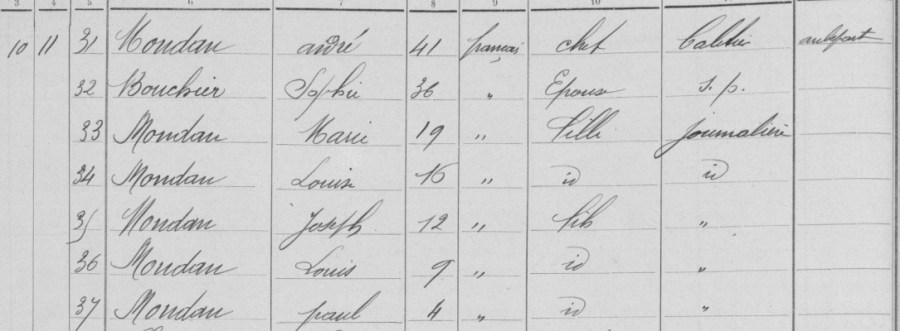 3 4 5 6 7 8 9 10
10 11 31 Mondan andré 41 français chef
32 Bouchier Sophie 36 " Epouse s.p.
33 Mondan Marie 19 " fille journalière
34 Mondan Louise 16 " id id
35 Mondan Joseph 12 " fils "
36 Mondan Louis 9 " id "
37 Mondan paul 4 " id "